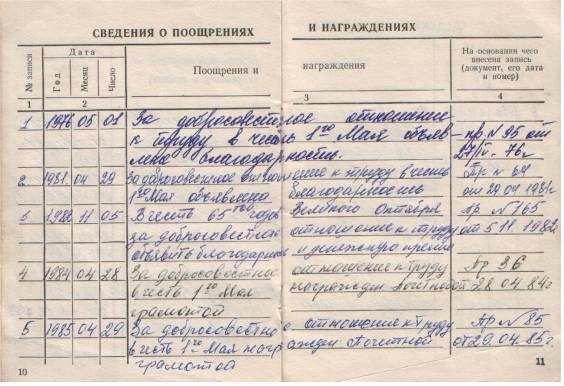 СВЕДЕНИЯ О ПООЩРЕНИЯХ И НАГРАЖДЕНИЯХ
№ записи
Дата
Год
Месяц
Число
Поощрения и награждения
На основании чего
внесена запись
(документ, его дата
и номер)
1 2 3 4
1 1976 05 01 За добросовестное отношение
к труду в честь 1го Мая объяв- пр. N 95 от
лена благодарность. 27/IV- 76г
2 1981 04 29 За добросовестное отношение к труду в честь Пр N 64
1го Мая объявлена благодарность от 29 04 1981г
3 1982 11 05 В честь 65 годов Великого Октября Пр. N 165
за добросовестное отношение к труду от 5 11. 1982
объявить благодарность и денежную премию
4 1984 04 28 За добросовестное отношение к труду Пр 36
в честь 1го Мая награжден Почётной 28 04 84г
грамотой
5 1985 04 29 За добросовестное отношение к труду Пр N 85
в честь 1го Мая награжден Почетной от 29.04.85г.
грамотой
10 11